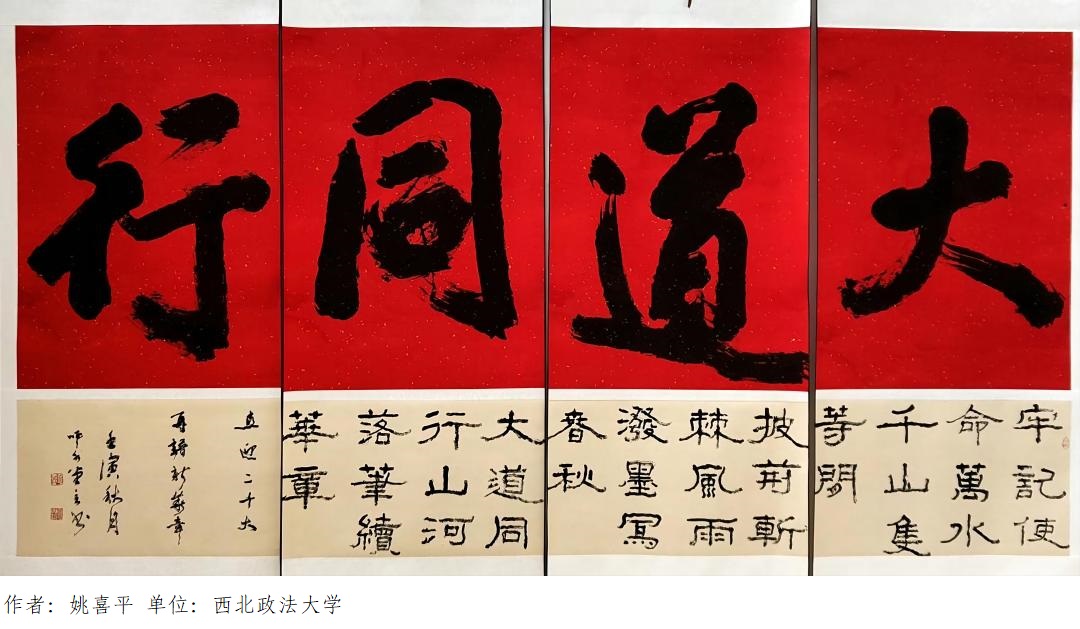 大道同行
牢記使
命萬水
千山隻
等閒
披荊斬
棘風雨
潑墨寫
春秋
大道同
行山河
落筆續
華章
喜迎二十大
再譜新華章
壬寅秋月
作者：姚喜平 单位：西北政法大学